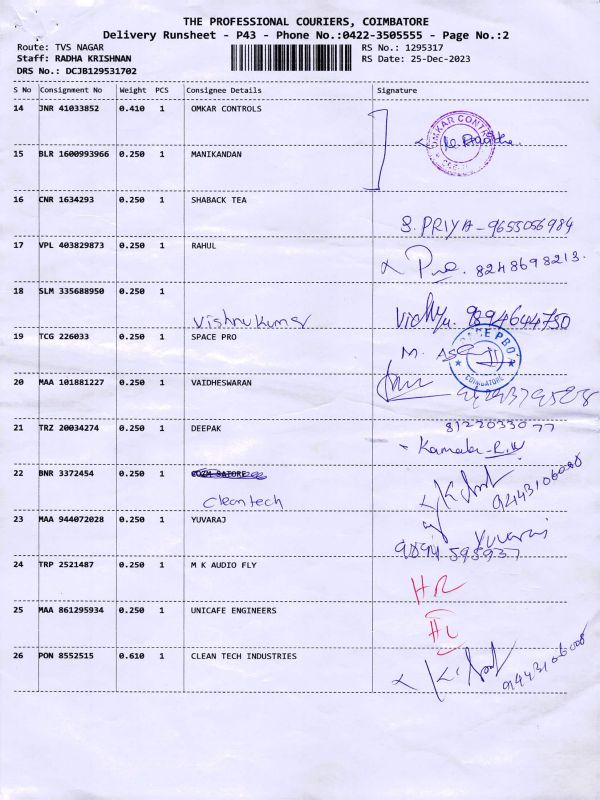 THE PROFESSIONAL COURIERS, COIMBATORE
Delivery Runsheet - P43 - Phone No.:0422-3505555 - Page No.:2
Route: TVS NAGAR RS No.: 1295317
Staff: RADHA KRISHNAN RS Date: 25-Dec-2023
DRS No.: DCJB129531702
S No Consignment No Weight PCS Consignee Details Signature
14 JNR 41033852 0.410 1 OMKAR CONTROLS
15 BLR 1600993966 0.250 1 MANIKANDAN
16 CNR 1634293 0.250 1 SHABACK TEA
S. PRIYA - 9655056984
17 VPL 403829873 0.250 1 RAHUL
8248698213.
18 SLM 335688950 0.250 1
Vishnu Kumar 9894644750
19 TCG 226033 0.250 1 SPACE PRO
COIMBATORE
20 MAA 101881227 0.250 1 VAIDHESWARAN
21 TRZ 20034274 0.250 1 DEEPAK
8122033077
22 BNR 3372454 0.250 1
Cleantech 9443106008
23 MAA 944072028 0.250 1 YUVARAJ
Yuvaraj
24 TRP 2521487 0.250 1 M K AUDIO FLY
25 MAA 861295934 0.250 1 UNICAFE ENGINEERS
26 PON 8552515 0.610 1 CLEAN TECH INDUSTRIES
9443106008